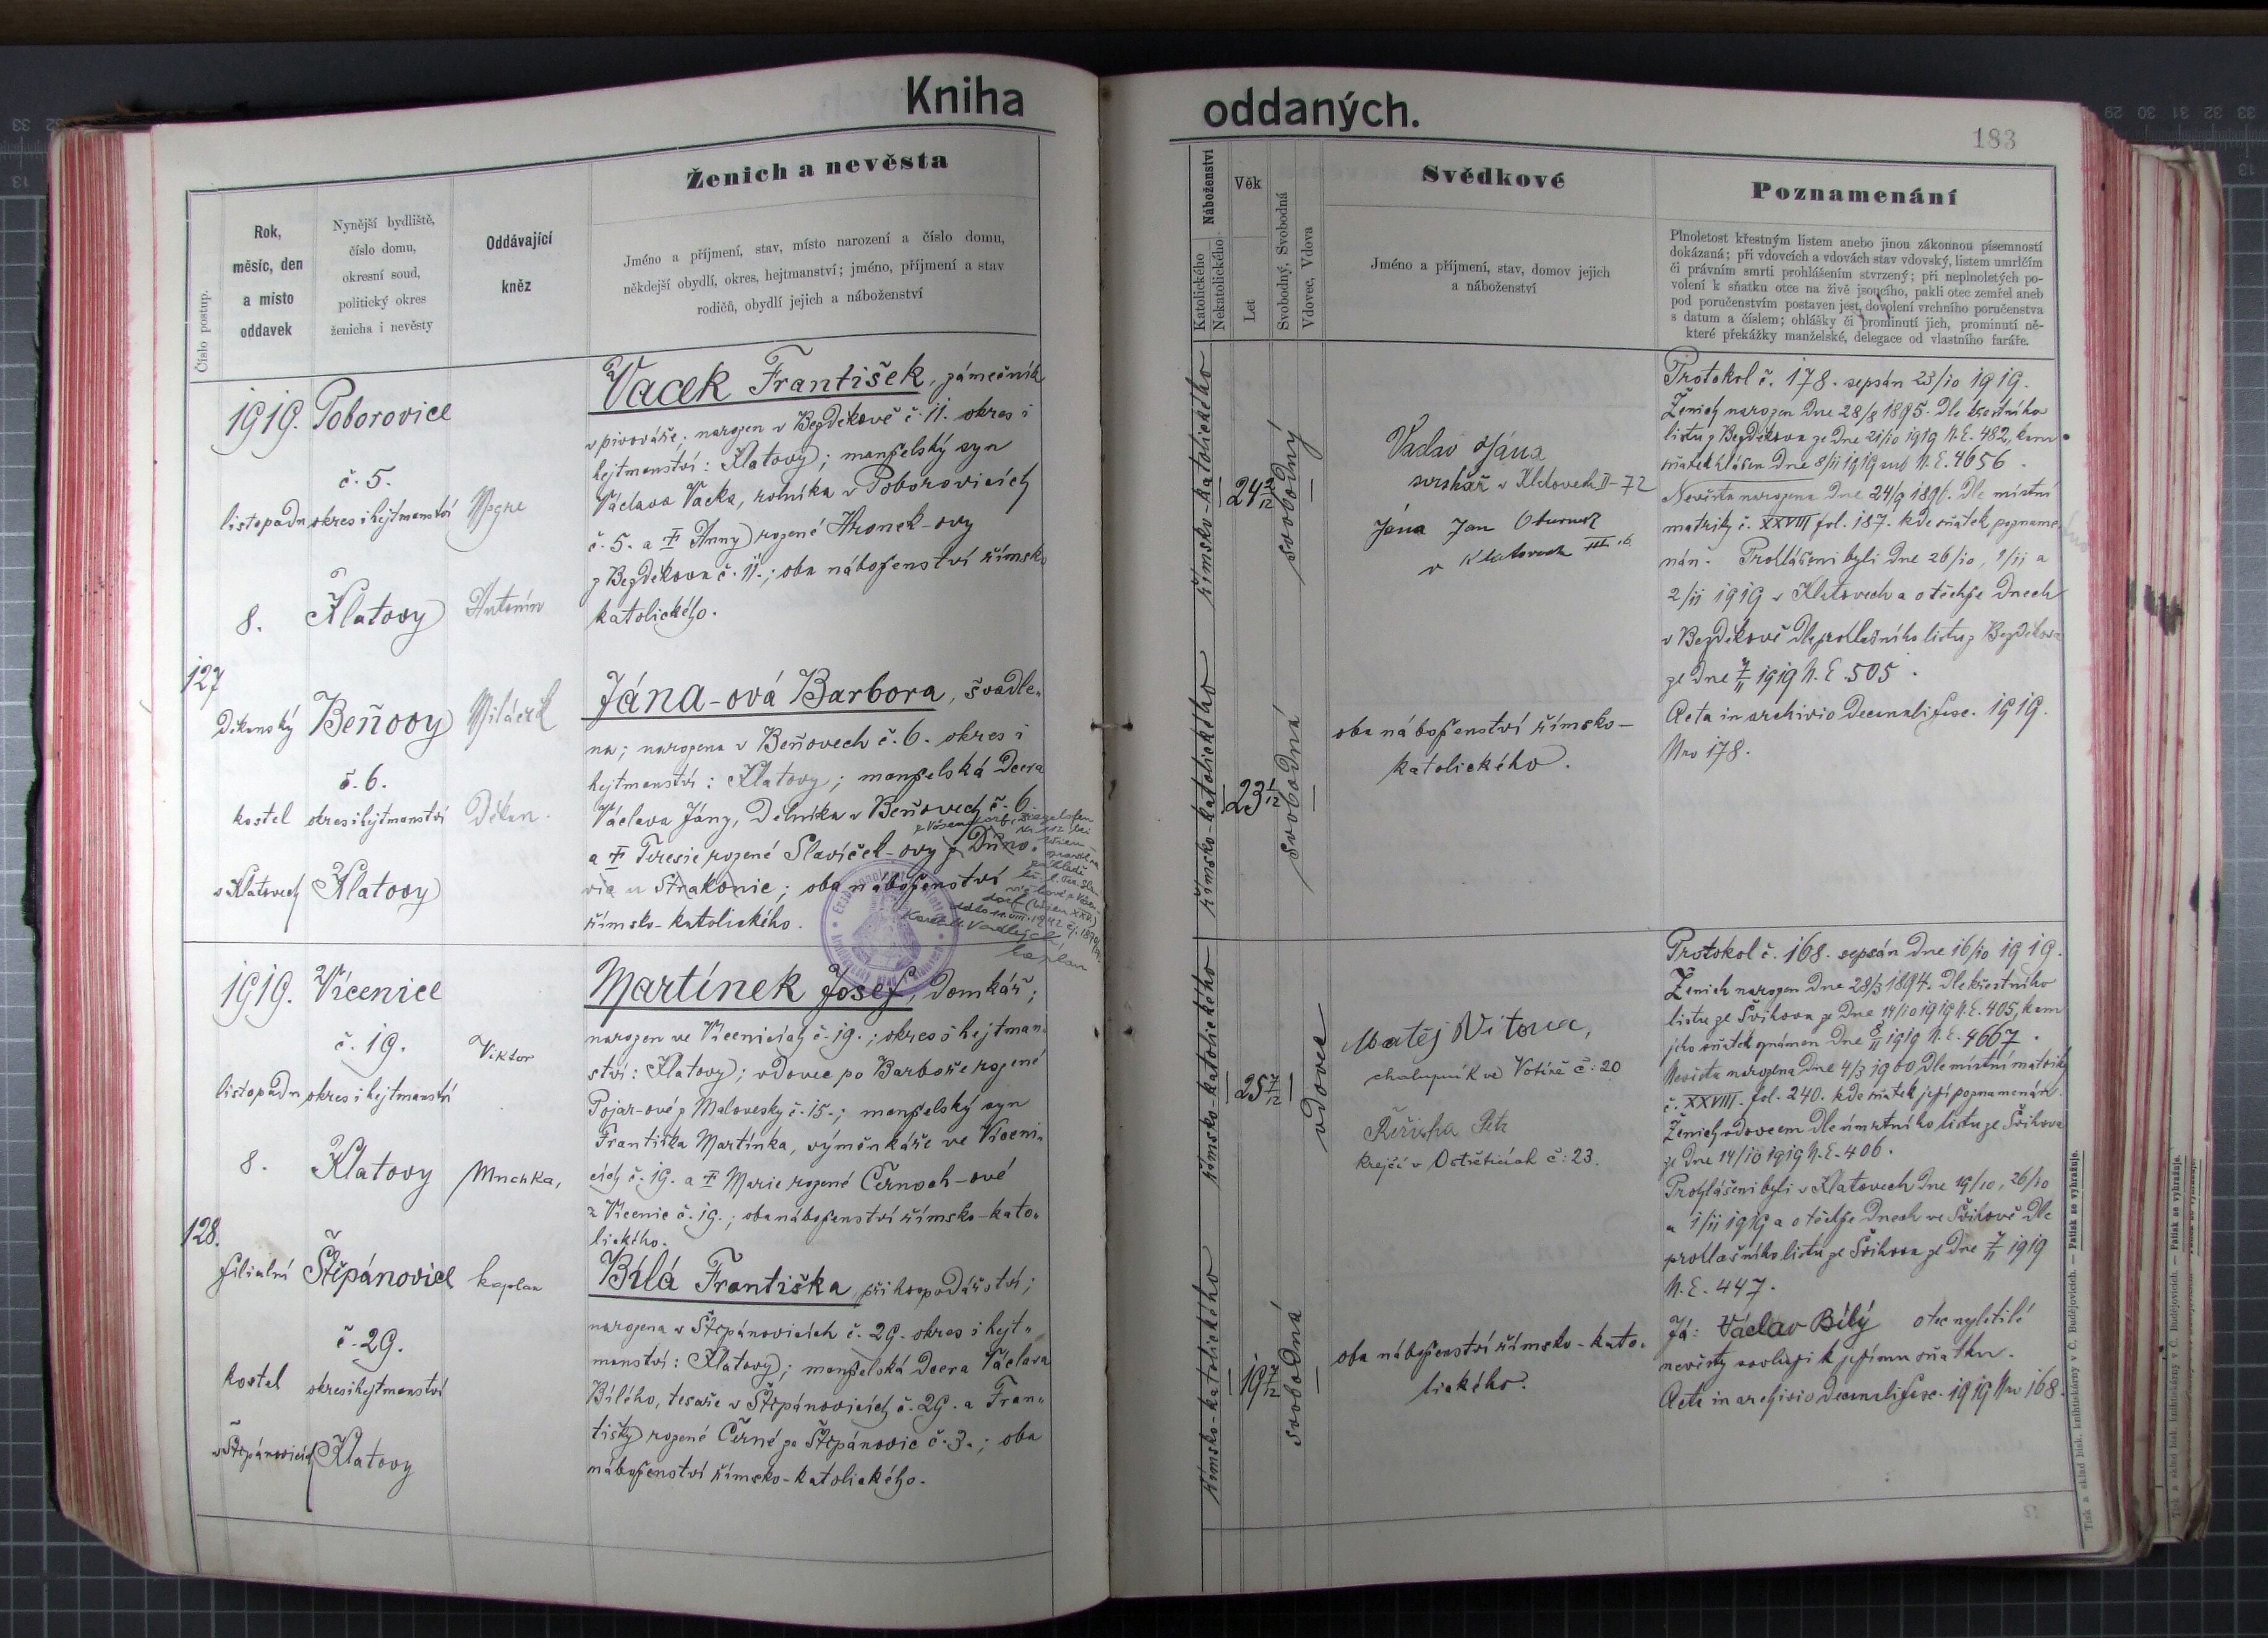 Kniha
oddaných.
183
Číslo postup.
Rok,
měsíc, den
a místo
oddavek
Nynější bydliště,
číslo domu,
okresní soud,
politický okres
ženicha i nevěsty
Oddávající
kněz
Ženich a nevěsta
Jméno a příjmení, stav, místo narození a číslo domu,
někdejší obydlí, okres, hejtmanství; jméno, příjmení a stav
rodičů, obydlí jejich a náboženství
Náboženství
Katolického
Nekatolického
Věk
Let
Svobodný, Svobodná
Vdovec, Vdova
Svědkové
Jméno a příjmení, stav, domov jejich
a náboženství
Poznamenání
Plnoletost křestným listem anebo jinou zákonnou písemností
dokázaná; při vdovcích a vdovách stav vdovský, listem umrlčím
či právním smrti prohlášením stvrzený; při neplnoletých po-
volení k sňatku otce na živě jsoucího, pakli otec zemřel aneb
pod poručenstvím postaven jest, dovolení vrchního poručenstva
s datum a číslem; ohlášky či prominutí jich, prominutí ně-
které překážky manželské, delegace od vlastního faráře.
127
1919.
listopadu
8.
Děkanský
kostel
v Klatovech
Poborovice
č. 5.
okres i hejtmanství
Klatovy
Beňovy
č. 6.
okres i hejtmanství
Klatovy
Msgre
Antonín
Miláček
Děkan.
Vacek František, zámečník
v pivováře; narozen v Bezděkově č. 11. okres i
hejtmanství: Klatovy; manželský syn
Václava Vacka, rolníka v Poborovicích
č. 5. a † Anny rozené Hronek-ovy
z Bezděkova č. 11.; oba náboženství římsko
katolického.
Jána-ová Barbora, švadle„
na; narozena v Beňovech č. 6. okres i
hejtmanství: Klatovy; manželská dcera
Václava Jány, dělníka v Beňovech č. 6
a † Teresie rozené Slavíček-ovy z Dřino„
via u Strakonic; oba náboženství
římsko-katolického.
kaplan
římsko-katolického
24 2/12
svobodný
římsko-katolického
23 1/12
svobodná
Vaclav Jána
v Klatovech II-72
Jána Jan
v Klatovech III 16
oba náboženství římsko-
katolického.
Protokol č. 178. sepsán 23/10 1919.
Ženich narozen dne 28/8 1895. Dle křestního
listu z Bezděkova ze dne 21/10 1919 N. E. 482, kam
sňatek hlášen dne 8/11 1919 sub N. E. 4656.
Nevěsta narozena dne 24/9 1896. Dle místní
matriky č. XXVIII fol. 187. kde sňatek pozname-
nán. Prohlášeni byli dne 26/10, 1/11 a
2/11 1919 v Klatovech a o těchže dnech
v Bezděkově dle prohlašního listu z Bezděkova
ze dne 7/11 1919 N. E. 505.
Acta in archivio decanali fasc. 1919.
Nro 178.
128.
1919.
listopadu
8.
filialní
kostel
v Štěpánovicích
Vícenice
č. 19.
okres i hejtmanství
Klatovy
Štěpánovice
č. 29.
okres i hejtmanství
Klatovy
Viktor
Mnchka,
kaplan
Martínek Josef, domkář;
narozen ve Vícenicích č. 19.; okres i hejtman„
ství: Klatovy; vdovec po Barboře rozené
Pojar-ové z Malovesky č. 15.; manželský syn
Františka Martínka, výměnkáře ve Víceni„
cích č. 19. a † Marie rozené Černoch-ové
z Vícenic č. 19.; oba náboženství římsko-kato„
lického.
Bílá Františka, při hospodářství;
narozena v Štěpánovicích č. 29. okres i hejt„
manství: Klatovy; manželská dcera Václava
Bílého, tesaře v Štěpánovicích č. 29. a Fran„
tišky rozené Černé ze Štěpánovic č. 3.; oba
náboženství římsko-katolického.
římsko-katolického
25 7/12
vdovec
římsko-katolického
19 7/12
svobodná
Matěj Vitovec,
chalupník ve Votíně č: 20
Petr
krejčí v Ostřeticích č: 23.
oba náboženství římsko-kato„
lického.
Protokol č. 168. sepsán dne 16/10 1919.
Ženich narozen dne 28/3 1894. Dle křestního
listu ze Švihova ze dne 14/10 1919 N. E. 405, kam
jeho sňatek oznámen dne 8/11 1919 N. E. 4667.
Nevěsta narozena dne 4/3 1900 Dle místní matriky
č. XXVIII. fol. 240. kde sňatek její poznamenán.
Ženich vdovcem dle úmrtního listu ze Švihova
ze dne 14/10 1919 N. E. 406.
Prohlášeni byli v Klatovech dne 19/10, 26/10
a 1/11 1919 a o těchže dnech ve Švihově dle
prohlašního listu ze Švihova ze dne 7/11 1919
N. E. 447.
Já: Václav Bílý otec nezletilé
nevěsty svoluji k jejímu sňatku.
Acta in archivio decanali fasc. 1919 Nro 168.
Tisk a sklad knihtiskárny v Č. Budějovicích. — Patisk se vyhražuje.